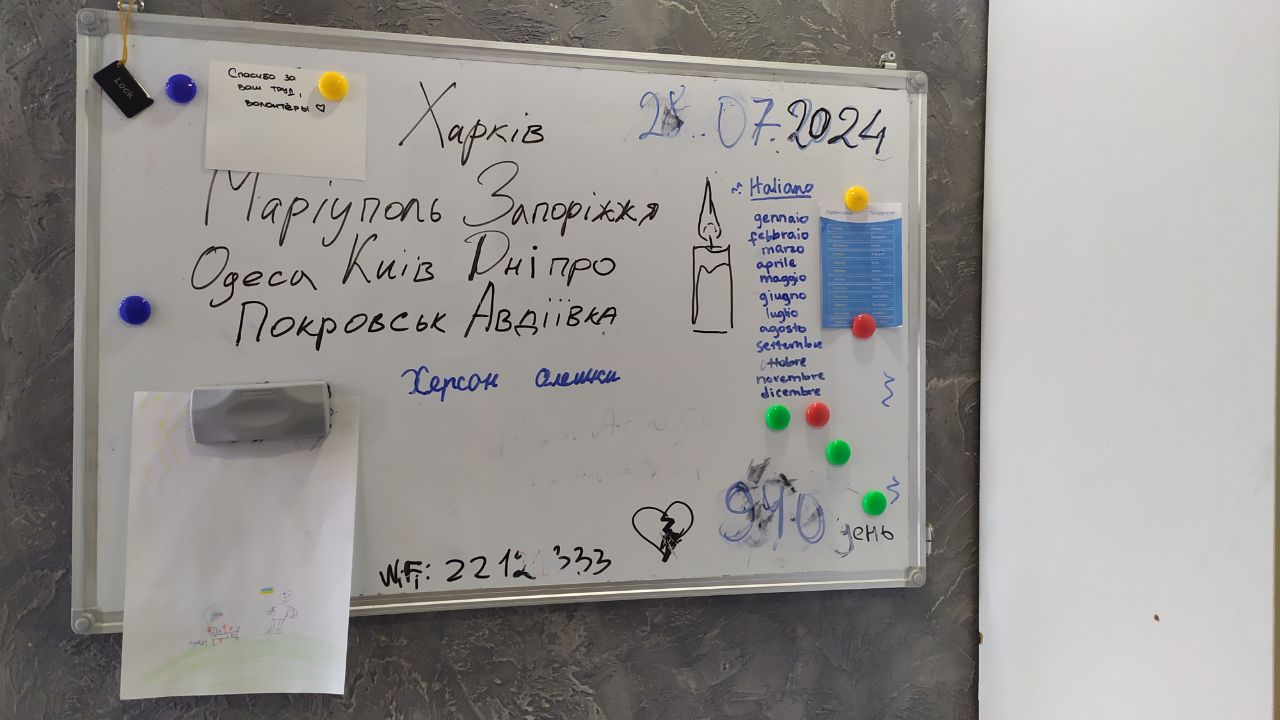 Lock
Спасибо за
ваш труд,
волонтёры ♡
Харків
28.07.2024
Маріуполь Запоріжжя
Одеса Київ Дніпро
Покровськ Авдіївка
Херсон Олешки
Italiano
gennaio
febbraio
marzo
aprile
maggio
giugno
luglio
agosto
settembre
ottobre
novembre
dicembre
По-русски
день
WiFi: